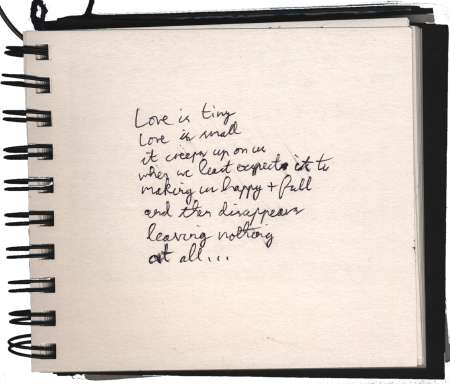 Love is tiny
Love is small
it creeps up on us
when we least expect it to
making us happy + full
and then disappears
leaving nothing
at all...